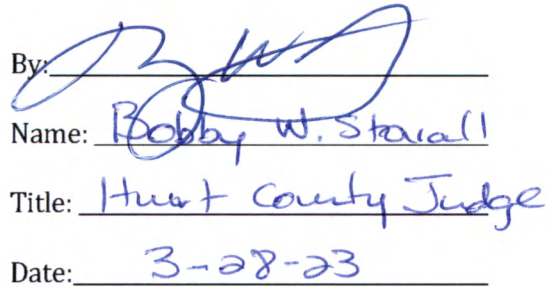 By:
Name: Bobby W. Stovall
Title: Hunt County Judge
Date: 3-28-23